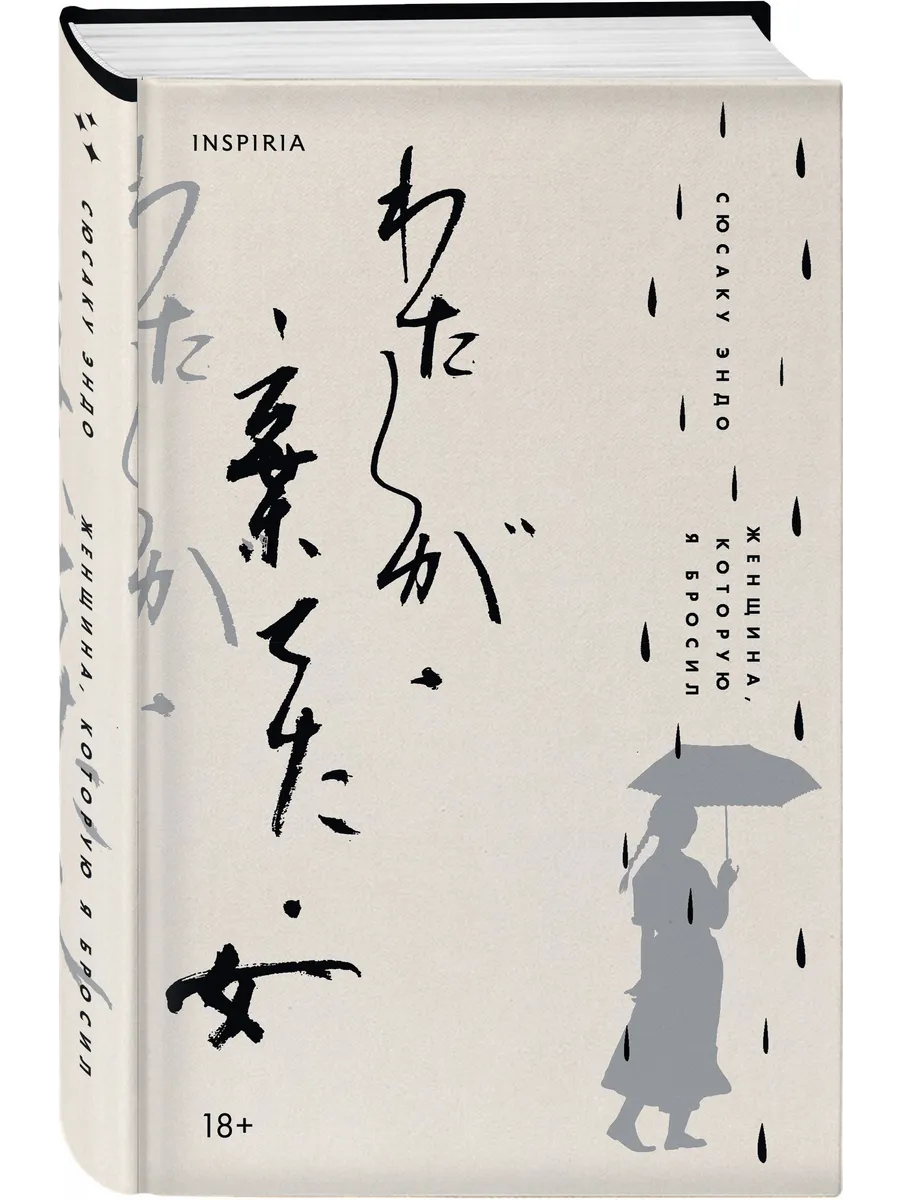 СЮСАКУ ЭНДО ЖЕНЩИНА, КОТОРУЮ Я БРОСИЛ
わたしが・
INSPIRIA
わたしが・
棄てた・
女
СЮСАКУ ЭНДО
ЖЕНЩИНА,
КОТОРУЮ
Я БРОСИЛ
18+